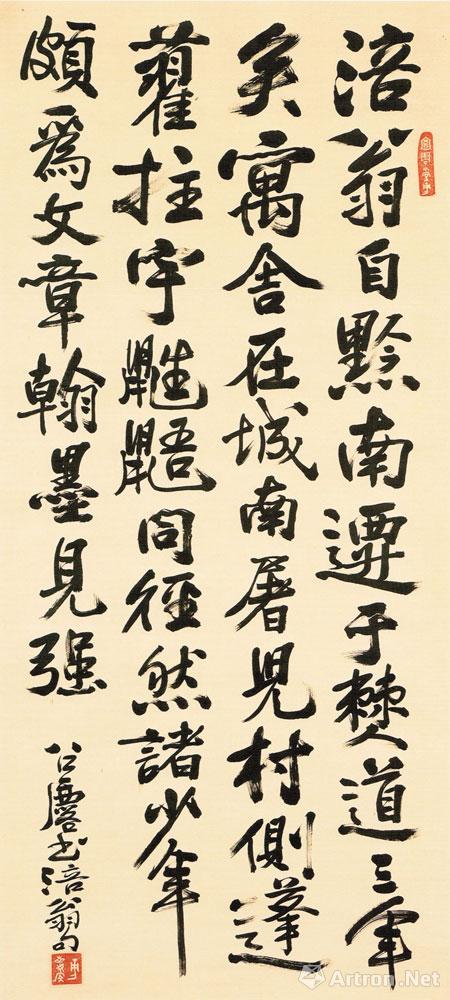 涪翁自黔南遷于僰道三年
矣寓舍在城南屠兒村側蓬
藋拄宇鼪鼯同徑然諸少年
頗爲文章翰墨見强
公书涪翁句
Artron.Net